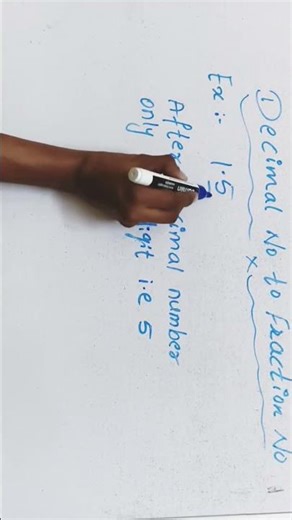 ① Decimal No to Fraction No
Ex :- 1.5
After imal number
only igit i.e 5